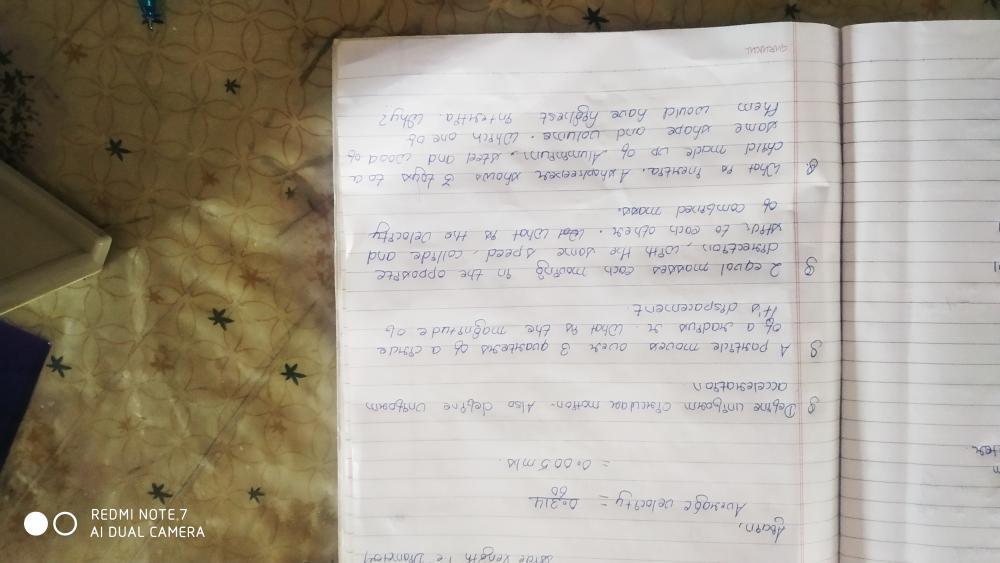 side length i.e Diameter)
Again,
Average velocity = 0.314
60
= 0.005 m/s.
Q Define uniform circular motion. Also define Uniform
acceleration
Q A particle moves over 3 quarters of a circle
of a radius r. What is the magnitude of
it's dispacement.
Q 2 equal masses each moving in the opposite
direction, with the same speed, collide and
stick to each other. What is the velocity
of combined mass.
Q. What is inertia. A shopkeeper shows 3 toys to a
child made up of Aluminium, steel and wood of
same shape and volume. Which one of
them would have highest intertia. Why?
GURUKUL
REDMI NOTE 7
AI DUAL CAMERA